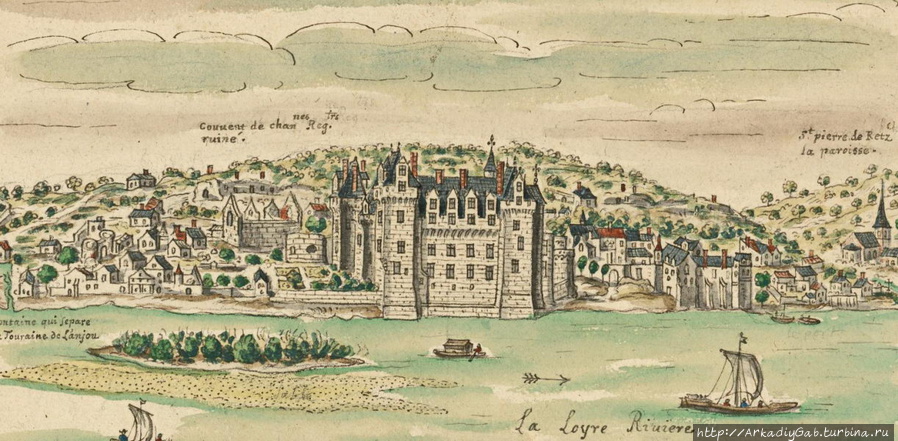 Couuent de chan nes Reg. trs
ruiné.
St pierre de Retz
la paroisse.
ontaine qui separe
Touraine de Lanjou
La Loyre Riuiere
http://ArkadiyGab.turbina.ru